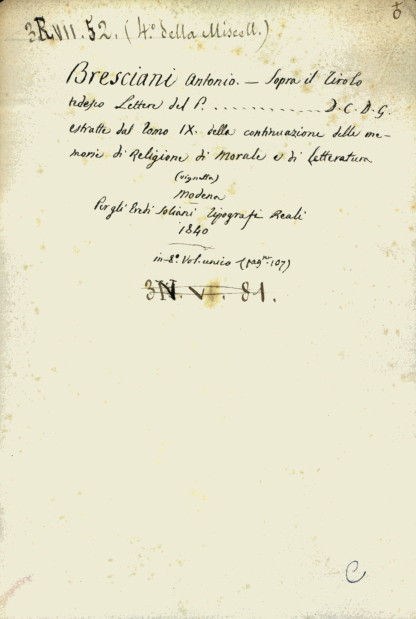 3R VII. 52. (4º della Miscell.)
6
Bresciani Antonio. — Sopra il Tirolo
tedesco Lettere del P. .............. D. C. D. G.
estratte dal Tomo IX. della continuazione delle me-
morie di Religione di Morale e di Letteratura
(vignetta)
Modena
Per gli Eredi Soliani Tipografi Reali
1840
in-8º Vol. unico (pag.ne 107)
3N. VI. 81.
C